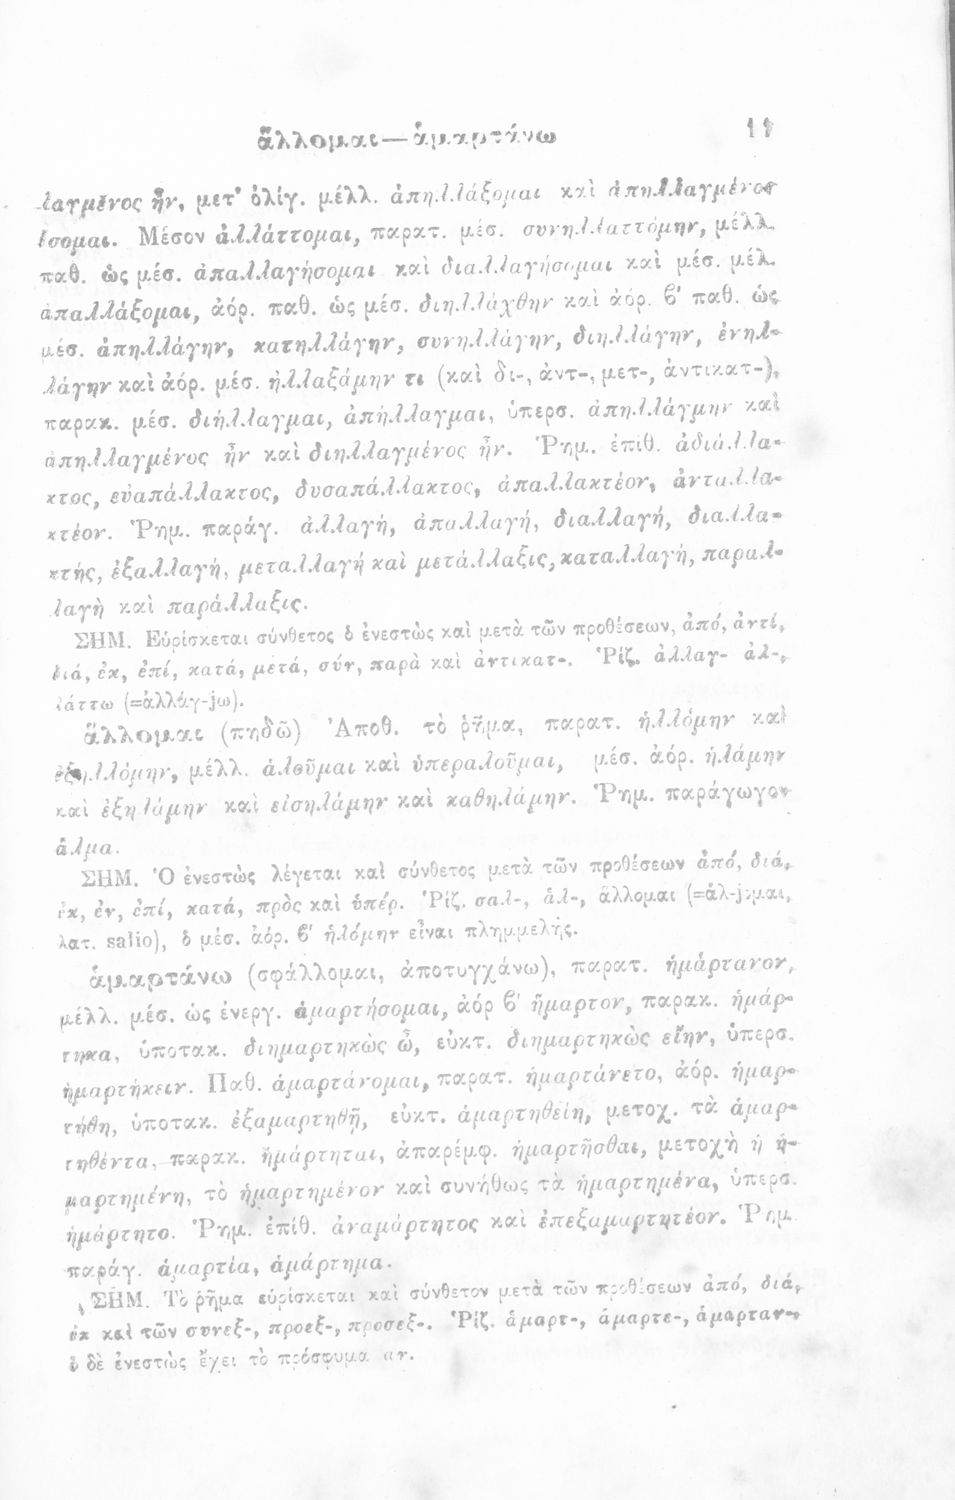 ἅλλομαι—ἁμαρτάνω
λαγμένος ἦν, μετ' ὀλίγ. μέλλ. ἀπηλλάξομαι καὶ ἀπηλλαγμένος
ἔσομαι. Μέσον ἀλλάττομαι, παρατ. μέσ. συνηλλαττόμην, μέλλ.
παθ. ὡς μέσ. ἀπαλλαγήσομαι καὶ διαλλαγήσομαι καὶ μέσ. μέλ.
ἀπαλλάξομαι, ἀόρ. παθ. ὡς μέσ. διηλλάχθην καὶ ἀόρ. ϐ' παθ. ὡς
μέσ. ἀπηλλάγην, κατηλλάγην, συνηλλάγην, διηλλάγην, ἐνηλ-
λάγην καὶ ἀόρ. μέσ. ἠλλαξάμην τι (καὶ δι-, ἀντ-, μετ-, ἀντικατ-),
παρακ. μέσ. διήλλαγμαι, ἀπήλλαγμαι, ὑπερσ. ἀπηλλάγμην καὶ
ἀπηλλαγμένος ἦν καὶ διηλλαγμένος ἦν. Ῥημ. ἐπιθ. ἀδιάλλα-
κτος, εὐαπάλλακτος, δυσαπάλλακτος, ἀπαλλακτέον, ἀνταλλα-
κτέον. Ῥημ. παράγ. ἀλλαγή, ἀπαλλαγή, διαλλαγή, διαλλα-
κτής, ἐξαλλαγή, μεταλλαγὴ καὶ μετάλλαξις, καταλλαγή, παραλ-
λαγὴ καὶ παράλλαξις.
ΣΗΜ. Εὑρίσκεται σύνθετος ὁ ἐνεστὼς καὶ μετὰ τῶν προθέσεων, ἀπό, ἀντί,
διά, ἐκ, ἐπί, κατά, μετά, σύν, παρὰ καὶ ἀντικατ-. Ῥίζ. ἀλλαγ- ἀλ-
λάττω (=ἀλλάγ-jω).
ἅλλομαι (πηδῶ) Ἀποθ. τὸ ῥῆμα, παρατ. ἡλλόμην καὶ
ἐξηλλόμην, μέλλ. ἁλοῦμαι καὶ ὑπεραλοῦμαι, μέσ. ἀόρ. ἡλάμην
καὶ ἐξηλάμην καὶ εἰσηλάμην καὶ καθηλάμην. Ῥημ. παράγωγον
ἅλμα.
ΣΗΜ. Ὁ ἐνεστὼς λέγεται καὶ σύνθετος μετὰ τῶν προθέσεων ἀπό, διά,
ἐκ, ἐν, ἐπί, κατά, πρὸς καὶ ὑπέρ. Ῥίζ. σαλ-, ἁλ-, ἅλλομαι (=ἅλ-jομαι,
λατ. salio), ὁ μέσ. ἀόρ. ϐ' ἡλόμην εἶναι πλημμελής.
ἁμαρτάνω (σφάλλομαι, ἀποτυγχάνω), παρατ. ἡμάρτανον,
μέλλ. μέσ. ὡς ἐνεργ. ἁμαρτήσομαι, ἀόρ ϐ' ἥμαρτον, παρακ. ἡμάρ-
τηκα, ὑποτακ. διημαρτηκὼς ὦ, εὐκτ. διημαρτηκὼς εἴην, ὑπερσ.
ἡμαρτήκειν. Παθ. ἁμαρτάνομαι, παρατ. ἡμαρτάνετο, ἀόρ. ἡμαρ-
τήθη, ὑποτακ. ἐξαμαρτηθῇ, εὐκτ. ἁμαρτηθείη, μετοχ. τὰ ἁμαρ-
τηθέντα, παρακ. ἡμάρτηται, ἀπαρέμφ. ἡμαρτῆσθαι, μετοχὴ ἡ ἡ-
μαρτημένη, τὸ ἡμαρτημένον καὶ συνήθως τὰ ἡμαρτημένα, ὑπερσ.
ἡμάρτητο. Ῥημ. ἐπίθ. ἀναμάρτητος καὶ ἐπεξαμαρτητέον. Ῥημ.
παράγ. ἁμαρτία, ἁμάρτημα.
ΣΗΜ. Τὸ ῥῆμα εὑρίσκεται καὶ σύνθετον μετὰ τῶν προθέσεων ἀπό, διά,
ἐκ καὶ τῶν συνεξ-, προεξ-, προσεξ-. Ῥίζ. ἁμαρτ-, ἁμαρτε-, ἁμαρταν-,
ὁ δὲ ἐνεστὼς ἔχει τὸ πρόσφυμα αν.